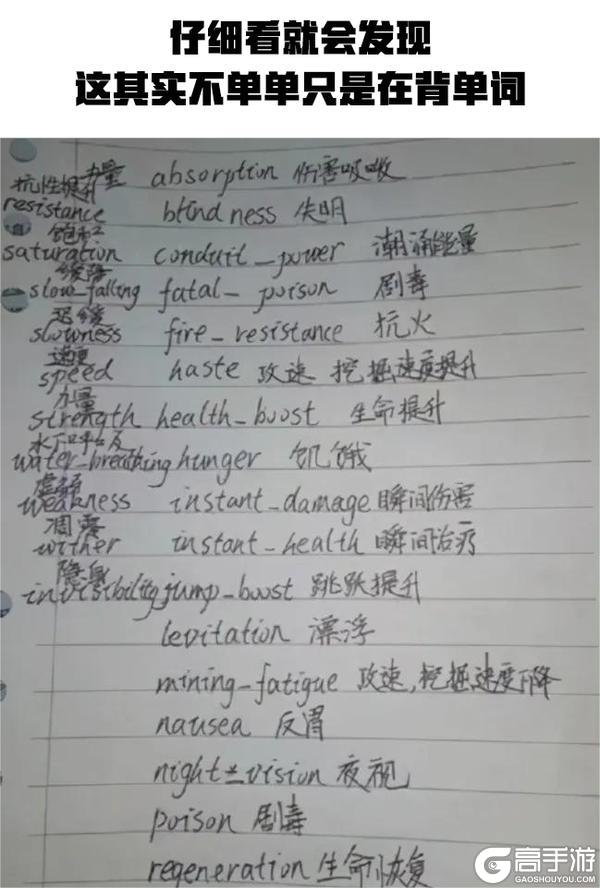 仔细看就会发现
这其实不单单只是在背单词
力量 absorption 伤害吸收
抗性提升
resistance blindness 失明
饱和
saturation conduit_power 潮涌能量
缓落
slow_falling fatal_poison 剧毒
迟缓
slowness fire_resistance 抗火
速度
speed haste 攻速 挖掘速度提升
力量
strength health_boost 生命提升
水下呼吸
water_breathing hunger 饥饿
虚弱
weakness instant_damage 瞬间伤害
凋零
wither instant_health 瞬间治疗
隐身
invisibility jump_boost 跳跃提升
levitation 漂浮
mining_fatigue 攻速,挖掘速度下降
nausea 反胃
night_vision 夜视
poison 剧毒
regeneration 生命恢复
高手游
GAOSHOUYOU.COM